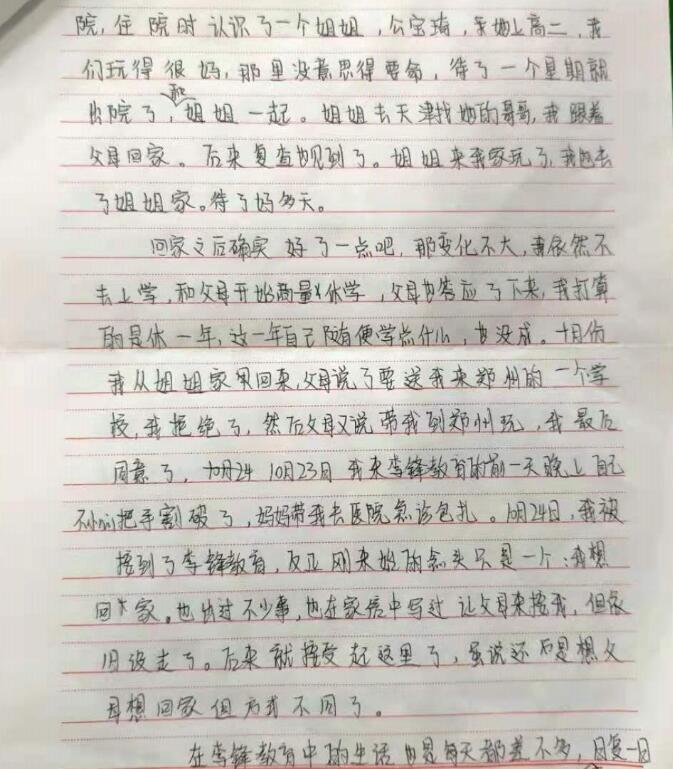 院，住院时认识了一个姐姐，公宝琦，她上高二，我
们玩得很好，那里没意思得要命，待了一个星期就
出院了，和姐姐一起。姐姐去天津找她的哥哥，我跟着
父母回家。后来复查也见到了。姐姐来我家玩了，我也去
了姐姐家。待了好多天。
回家之后确实好了一点吧，那变化不大，我依然不
去上学，和父母开始商量休学，父母也答应了下来，我打算
的是休一年，这一年自己随便学点什么，也没成。十月份
我从姐姐家回来，父母说了要送我来郑州的一个学
校，我拒绝了，然后父母又说带我到郑州玩，我最后
同意了，10月24 10月23日 我来李锋教育的前一天晚上自己
不小心把手割破了，妈妈带我去医院急诊包扎。10月24日，我被
接到了李锋教育，反正刚来始的念头只是一个：我想
回家。也出过不少事，也在家信中写过让父母来接我，但依
旧没走了。后来就接受起这里了，虽说还是想父
母想回家但方式不同了。
在李锋教育中的生活也是每天都差不多，日复一日